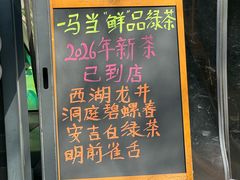 一马当"鲜"品绿茶
2026年新茶
已到店
西湖龙井
洞庭碧螺春
安吉白绿茶
明前雀舌